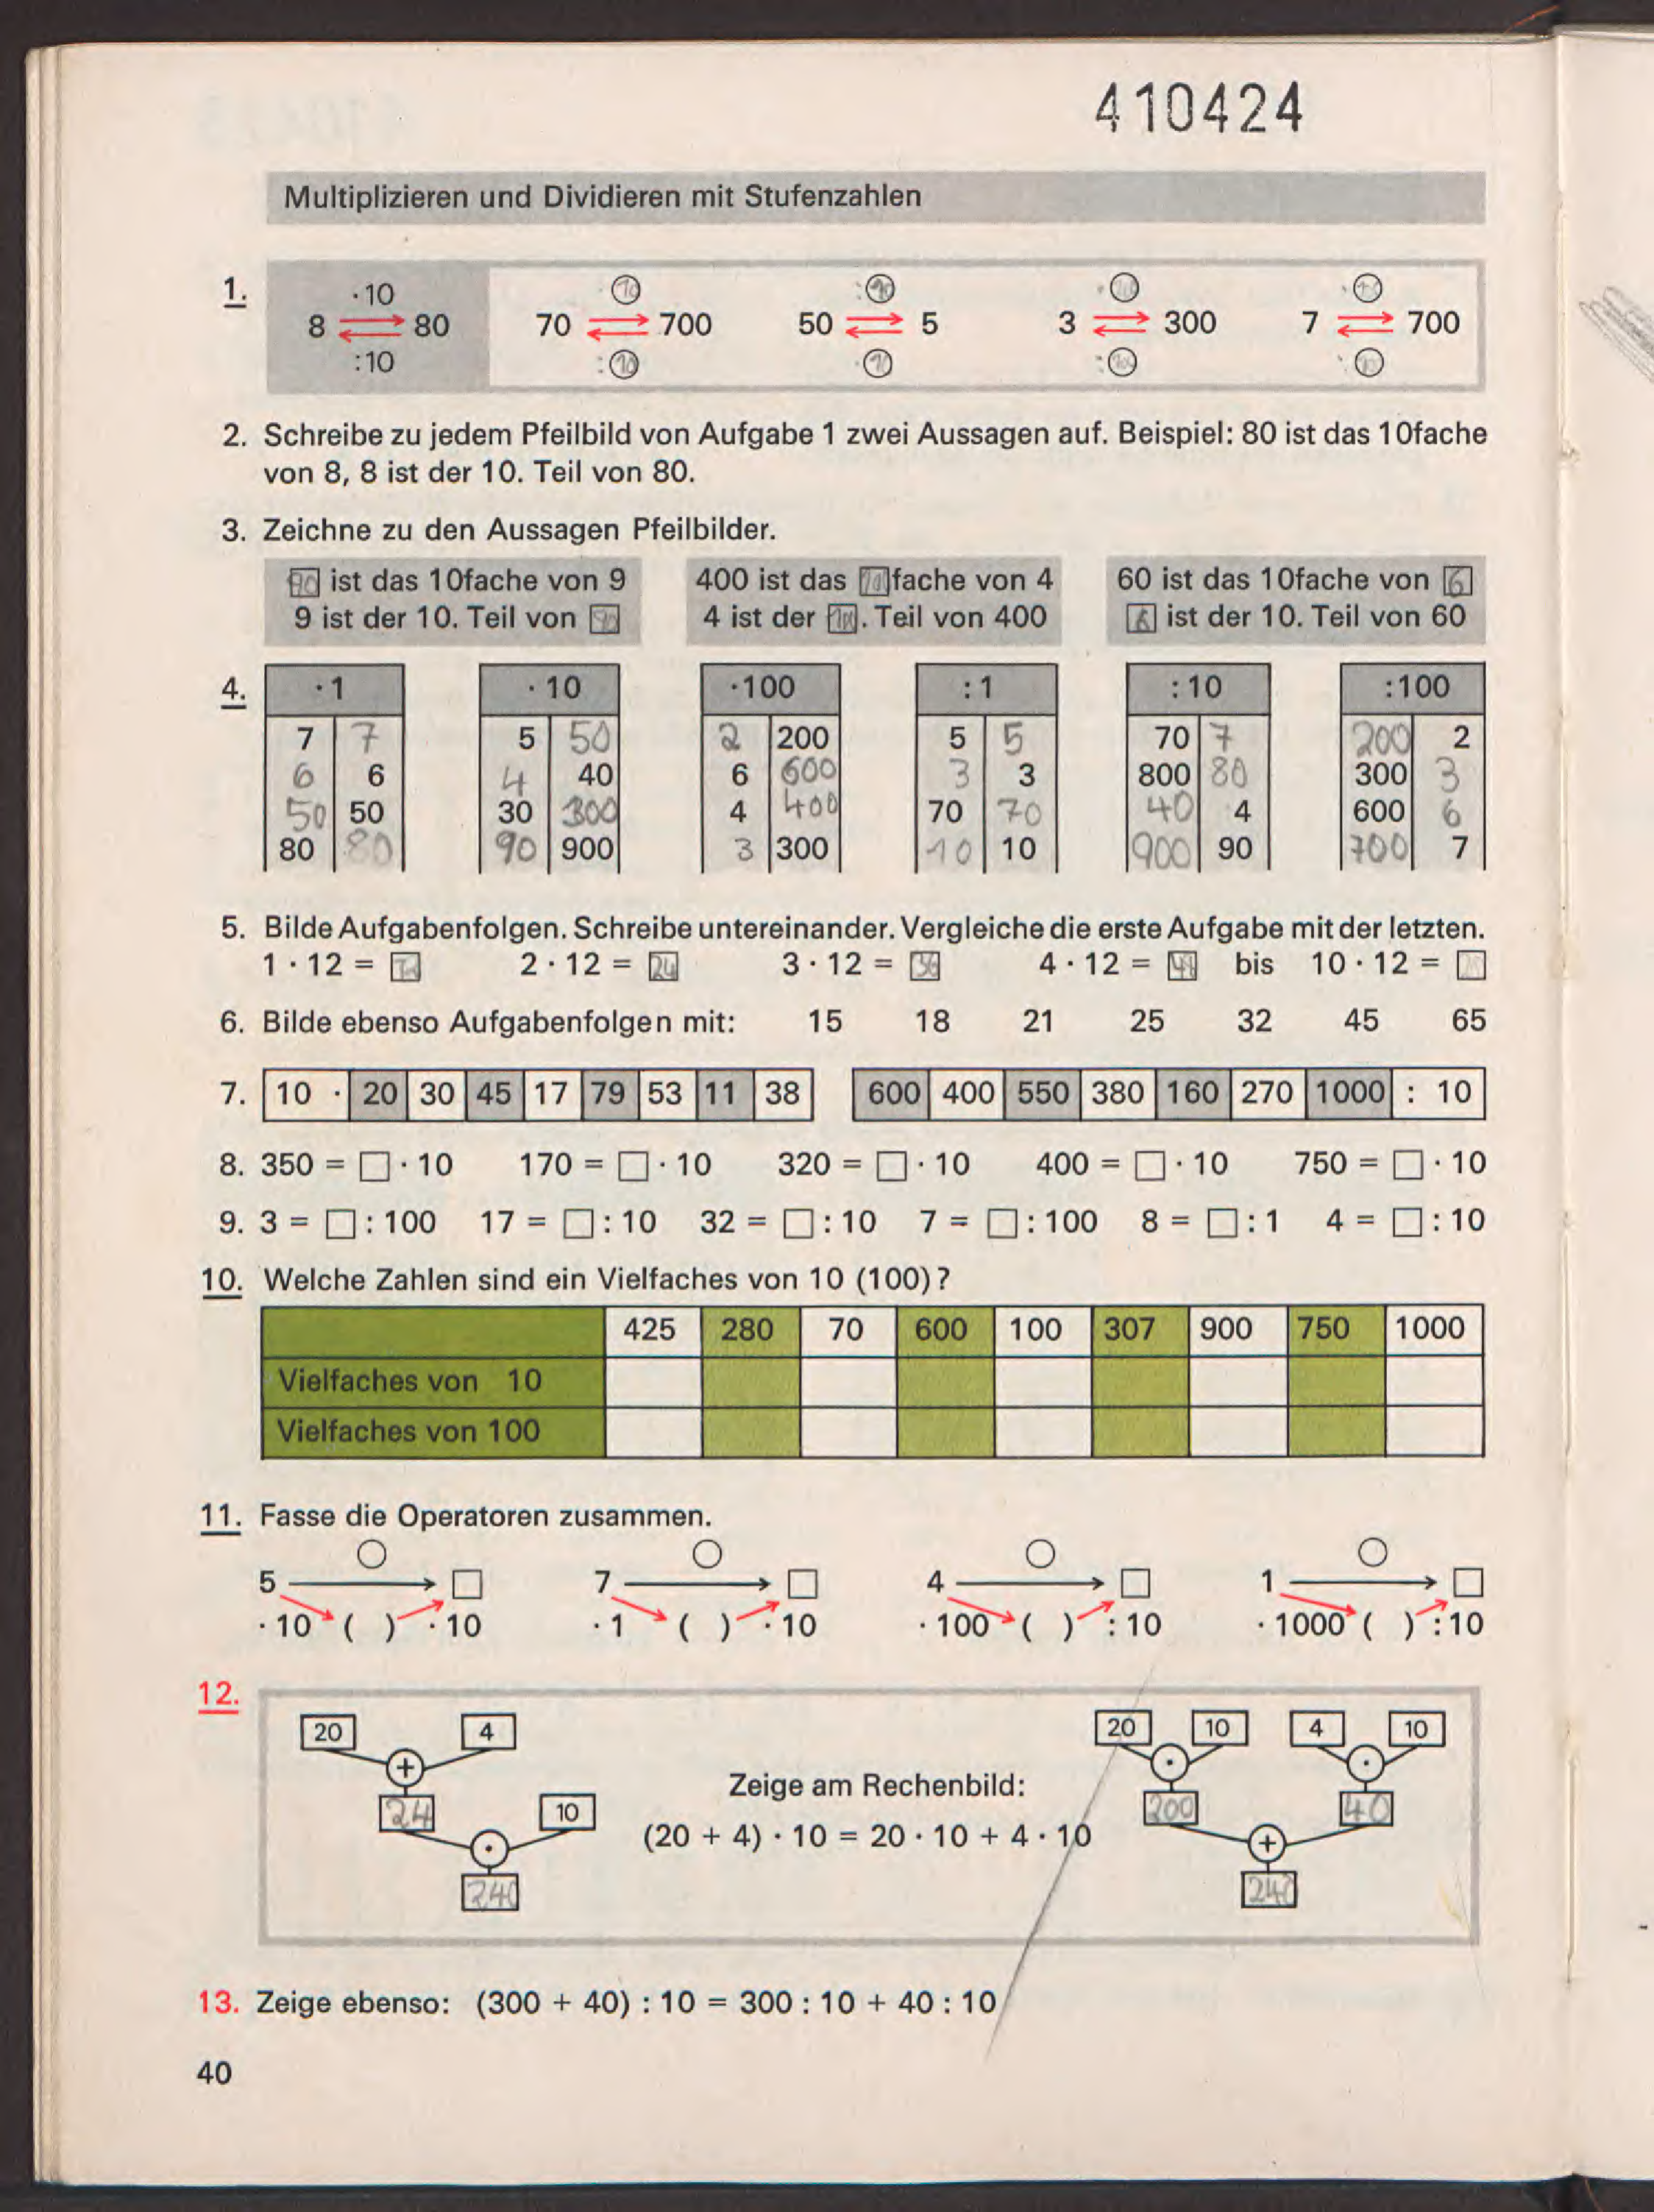 410424
Multiplizieren und Dividieren mit Stufenzahlen
1. 8 ·10 80 :10 70 · 10 700 : 10 50 : 10 5 · 10 3 · 300 : 7 · 700
2. Schreibe zu jedem Pfeilbild von Aufgabe 1 zwei Aussagen auf. Beispiel: 80 ist das 10fache
von 8, 8 ist der 10. Teil von 80.
3. Zeichne zu den Aussagen Pfeilbilder.
90 ist das 10fache von 9 400 ist das fache von 4 60 ist das 10fache von 6
9 ist der 10. Teil von 90 4 ist der . Teil von 400 6 ist der 10. Teil von 60
4. ·1 ·10 ·100 :1 :10 :100
7 7 5 50 2 200 5 5 70 7 200 2
6 6 4 40 6 600 3 3 800 80 300 3
50 50 30 300 4 400 70 70 40 4 600 6
80 80 90 900 3 300 10 10 900 90 700 7
5. Bilde Aufgabenfolgen. Schreibe untereinander. Vergleiche die erste Aufgabe mit der letzten.
1 · 12 = 12 2 · 12 = 24 3 · 12 = 36 4 · 12 = 48 bis 10 · 12 = □
6. Bilde ebenso Aufgabenfolgen mit: 15 18 21 25 32 45 65
7. 10 · 20 30 45 17 79 53 11 38 600 400 550 380 160 270 1000 : 10
8. 350 = □ · 10 170 = □ · 10 320 = □ · 10 400 = □ · 10 750 = □ · 10
9. 3 = □ : 100 17 = □ : 10 32 = □ : 10 7 = □ : 100 8 = □ : 1 4 = □ : 10
10. Welche Zahlen sind ein Vielfaches von 10 (100)?
425 280 70 600 100 307 900 750 1000
Vielfaches von 10
Vielfaches von 100
11. Fasse die Operatoren zusammen.
5 □ 7 □ 4 □ 1 □
· 10 ( ) · 10 · 1 ( ) · 10 · 100 ( ) : 10 · 1000 ( ) : 10
12.
20 4 20 10 4 10
+ · ·
24 10 Zeige am Rechenbild: 200 40
· (20 + 4) · 10 = 20 · 10 + 4 · 10 +
240 240
13. Zeige ebenso: (300 + 40) : 10 = 300 : 10 + 40 : 10
40